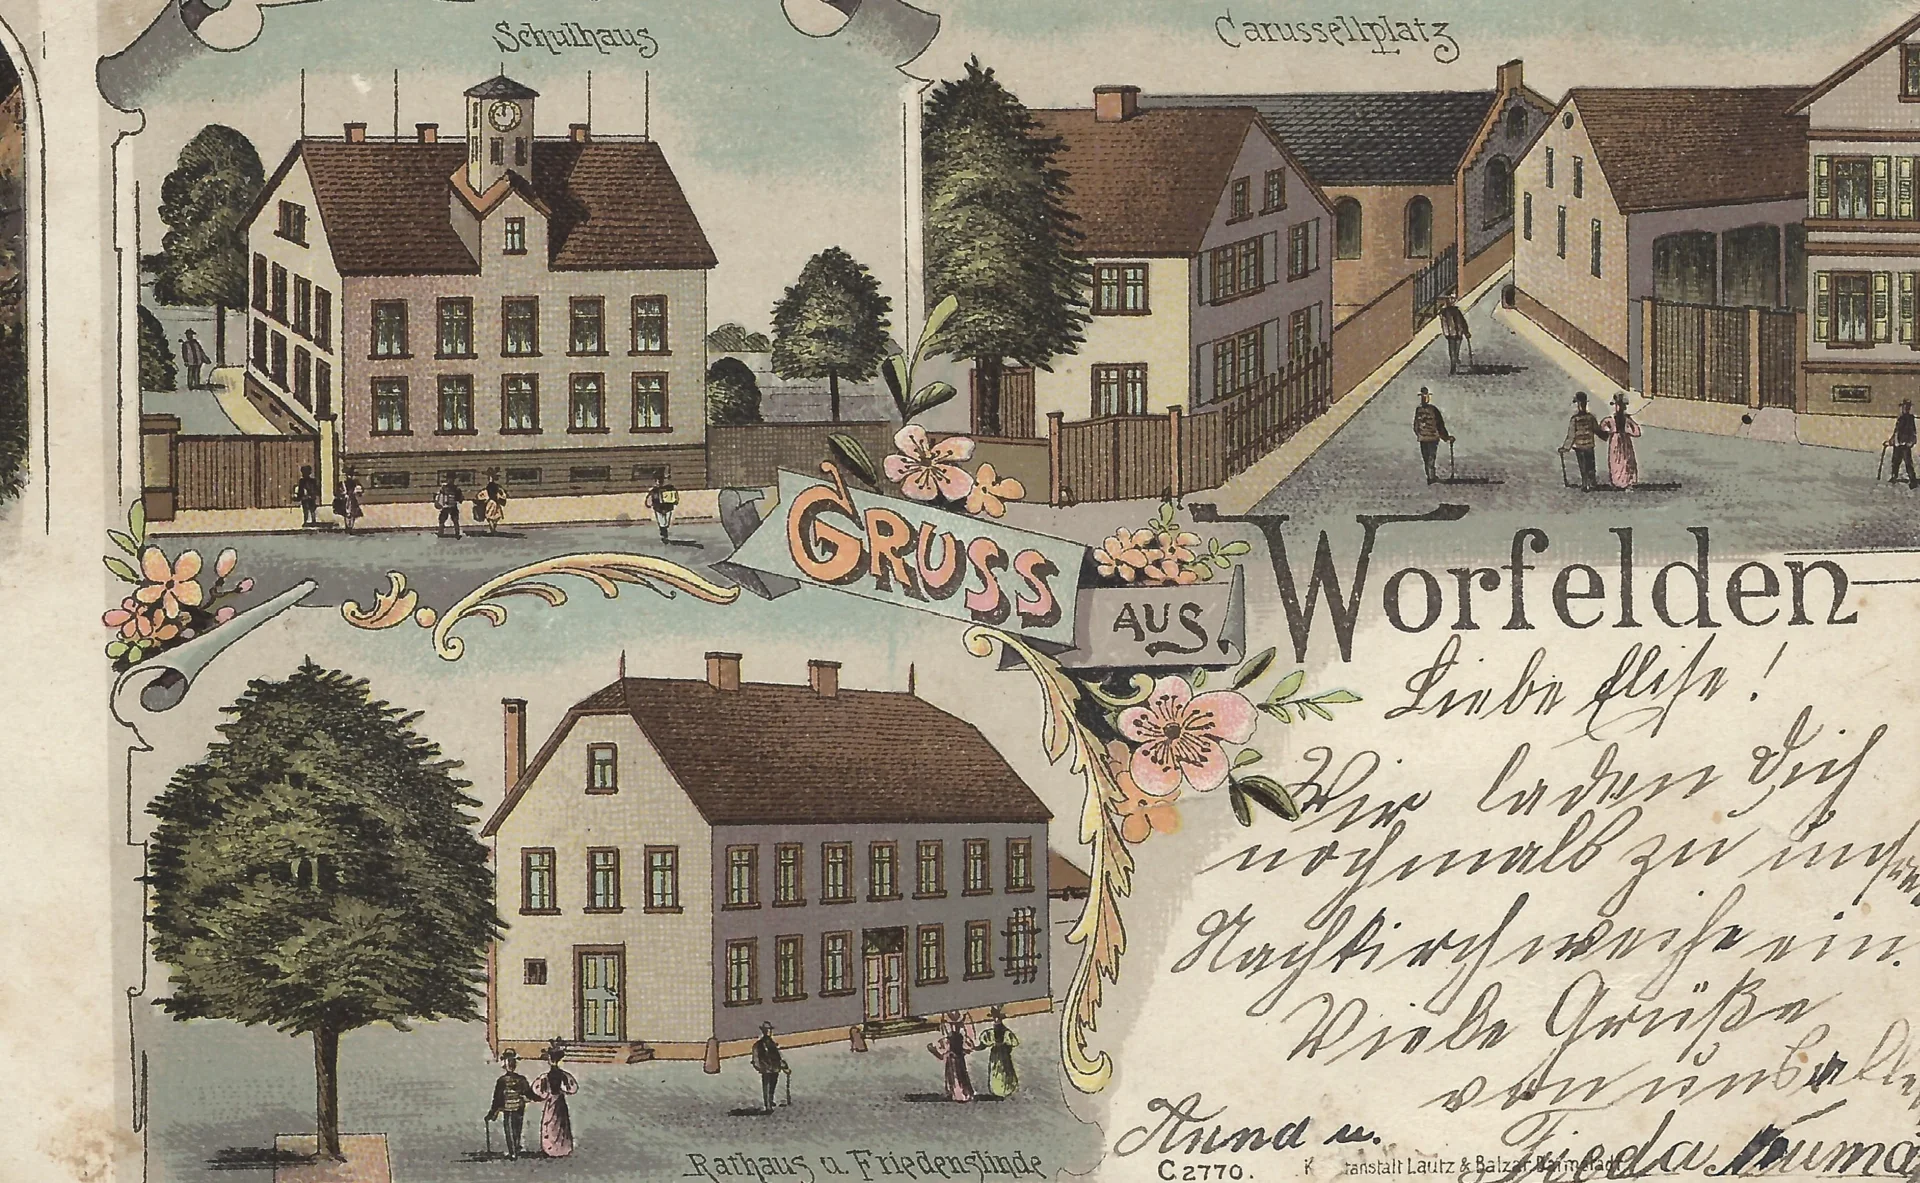 Schulhaus
Carussellplatz
GRUSS
AUS
Worfelden
Liebe Elise!
Wir laden Dich
nochmals zu unsrer
Nachkirchweihe ein.
Viele Grüße
von uns alle
Anna u. Frieda
Rathaus u. Friedenslinde
C 2770.
anstalt Lautz & Balzar, Darmstadt